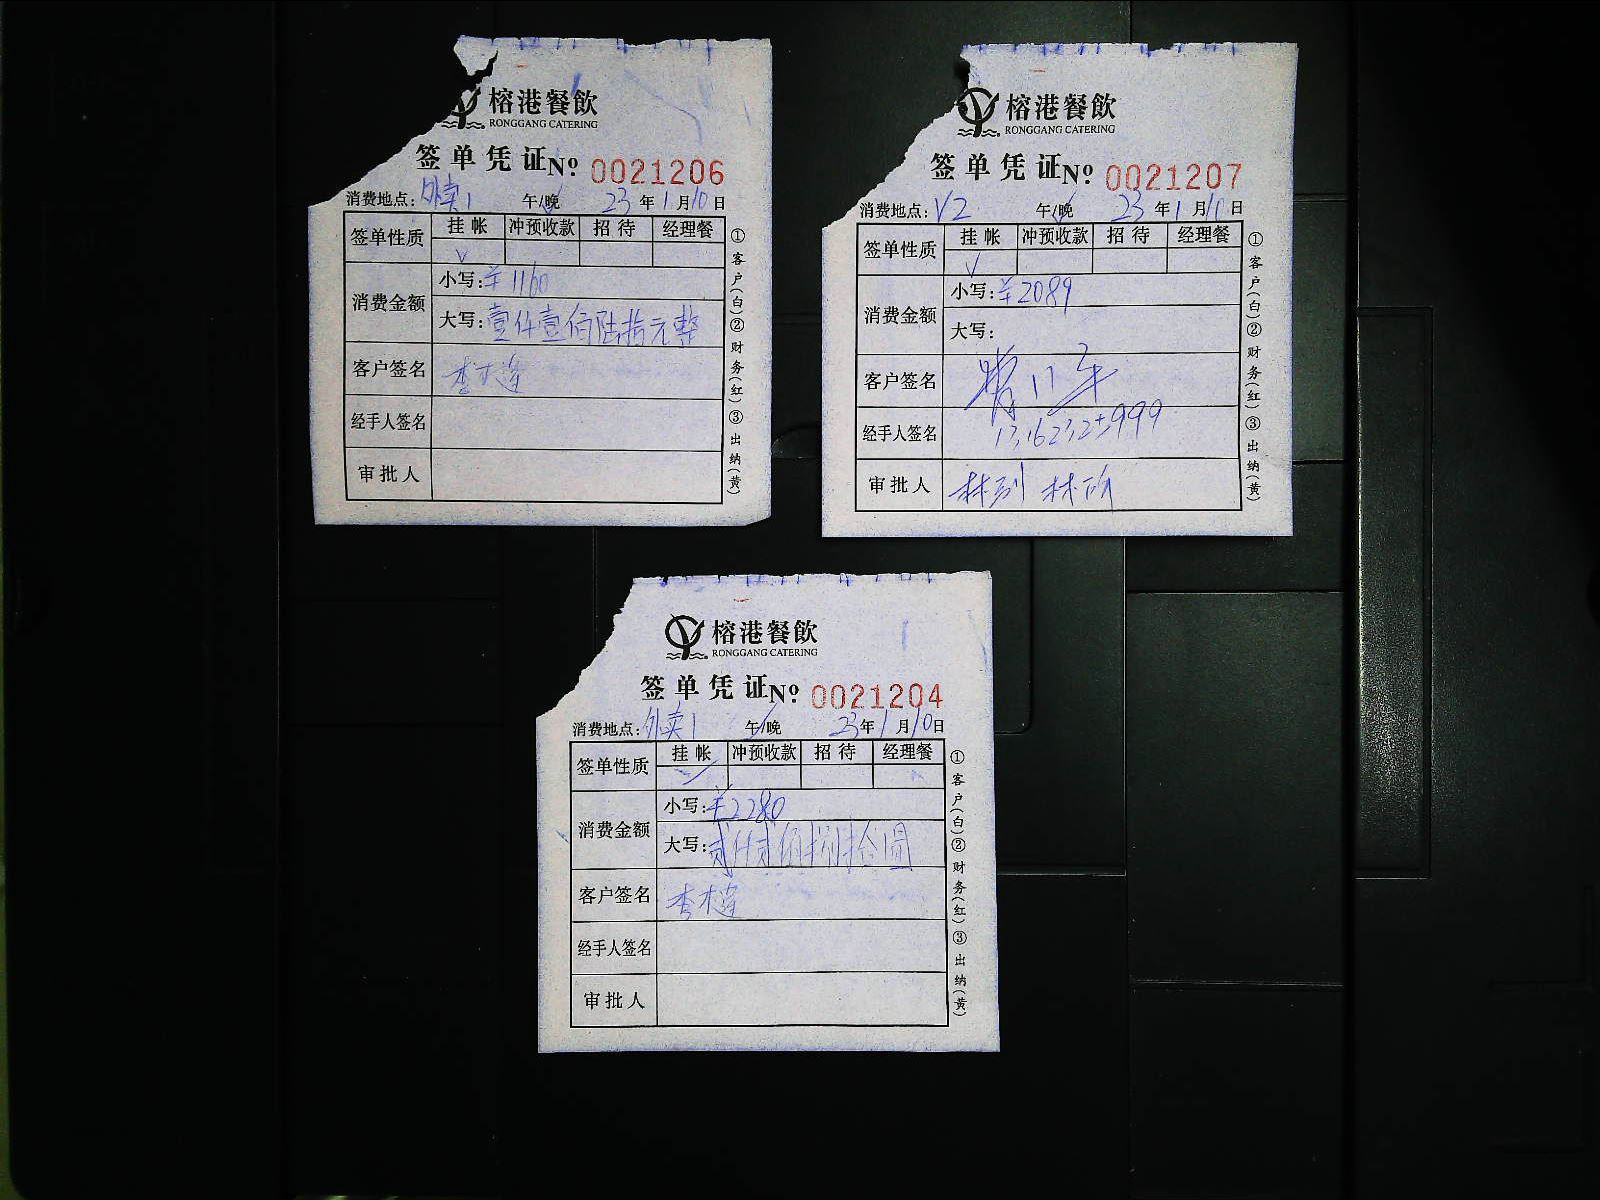 榕港餐飲
RONGGANG CATERING
签单凭证 No 0021206
消费地点: 外卖1 午/晚 23年1月10日
签单性质 挂帐 冲预收款 招待 经理餐
消费金额
小写: ¥1160
大写: 壹仟壹佰陆拾元整
客户签名 李
经手人签名
审批人
①客户(白)②财务(红)③出纳(黄)
榕港餐飲
RONGGANG CATERING
签单凭证 No 0021207
消费地点: V2 午/晚 23年1月10日
签单性质 挂帐 冲预收款 招待 经理餐
消费金额
小写: ¥2089
大写:
客户签名
经手人签名
审批人 林
①客户(白)②财务(红)③出纳(黄)
榕港餐飲
RONGGANG CATERING
签单凭证 No 0021204
消费地点: 外卖1 午/晚 23年1月10日
签单性质 挂帐 冲预收款 招待 经理餐
消费金额
小写: ¥2280
大写: 贰仟贰佰捌拾圆
客户签名 李
经手人签名
审批人
①客户(白)②财务(红)③出纳(黄)